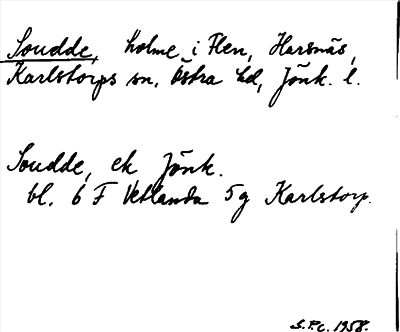 Soudde, holme i Flen, Harsnäs,
Karlstorps sn, Östra hd, Jönk. l.
Soudde, ek Jönk.
bl. 6 F Vetlanda 5g Karlstorp.
S.P.c. 1958.